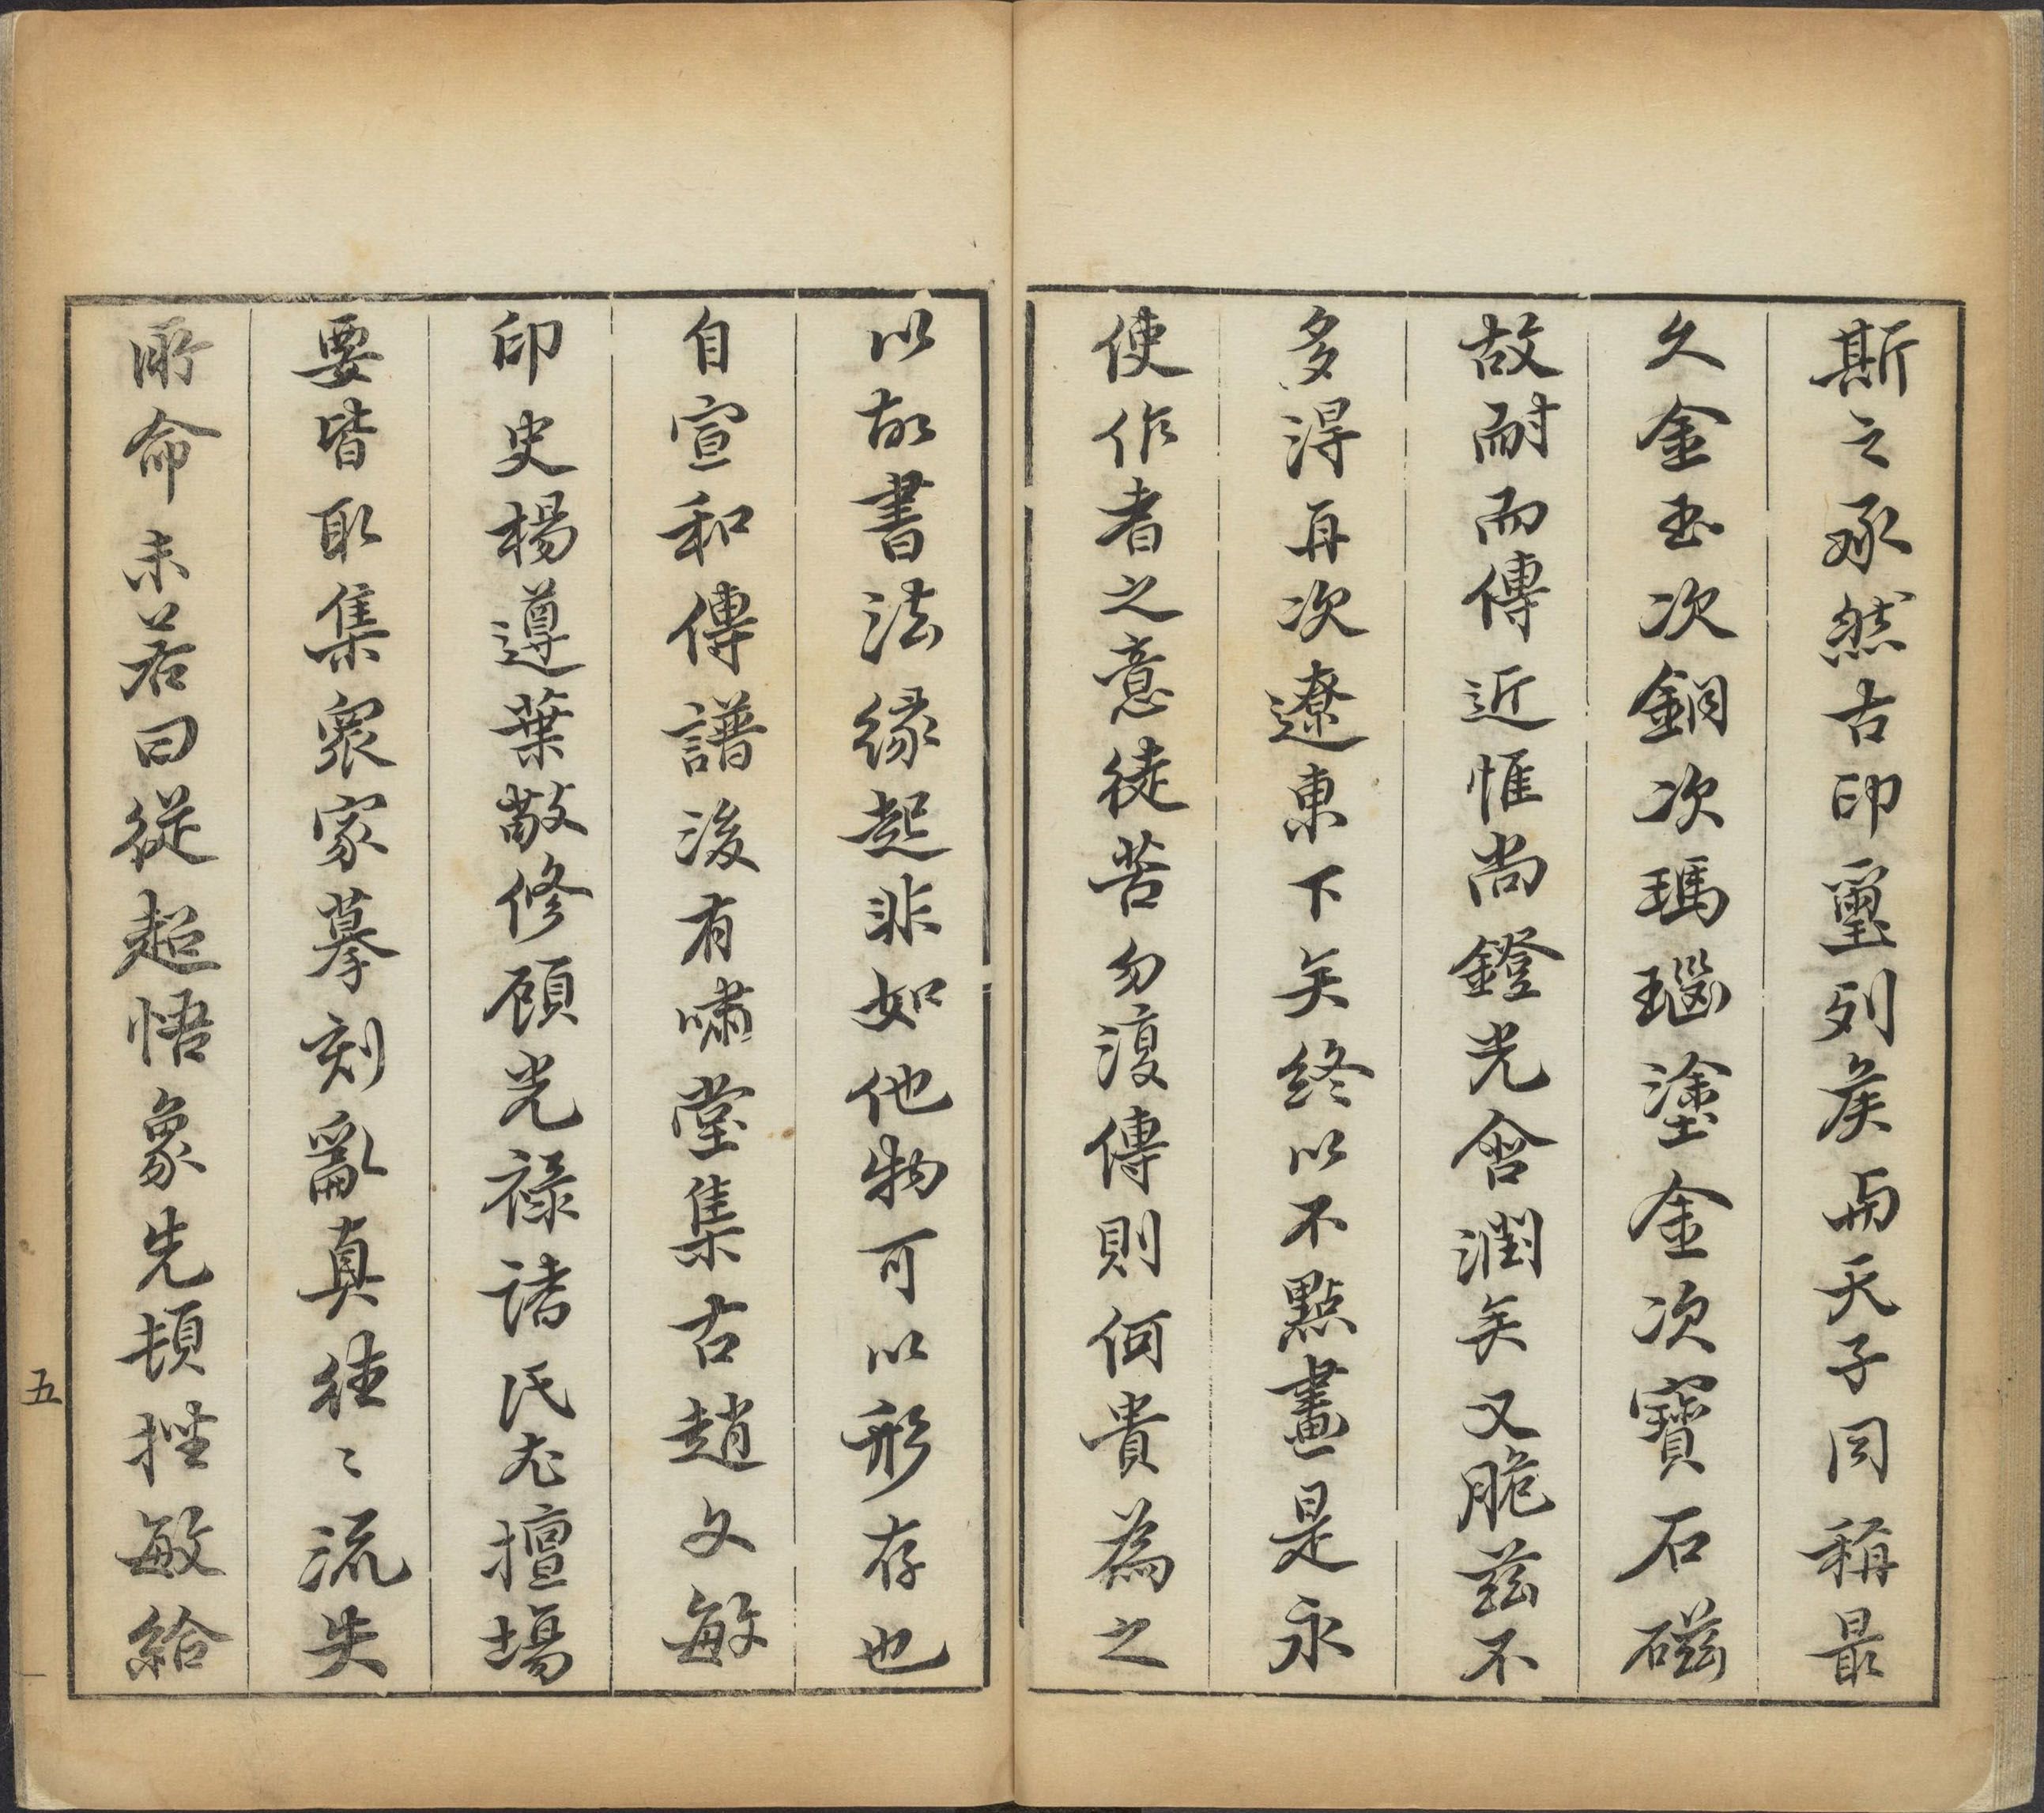 斯之承然古印璽列矦而天子同稱最
久金玉次銅次瑪瑙塗金次寶石磁
故耐而傳近惟尚鐙光含潤矣又脆兹不
多淂再次遼東下矣終以不點畫是永
使作者之意徒苦勿復傳則何貴為之
以故書法緣起非如他物可以形存也
自宣和傳譜後有嘯堂集古趙文敏
印史楊遵葉敬修顧光祿諸氏尤擅場
要皆取集眾家摹刻亂真往〻流失
所命未若曰從超悟象先頓挫敏給
五